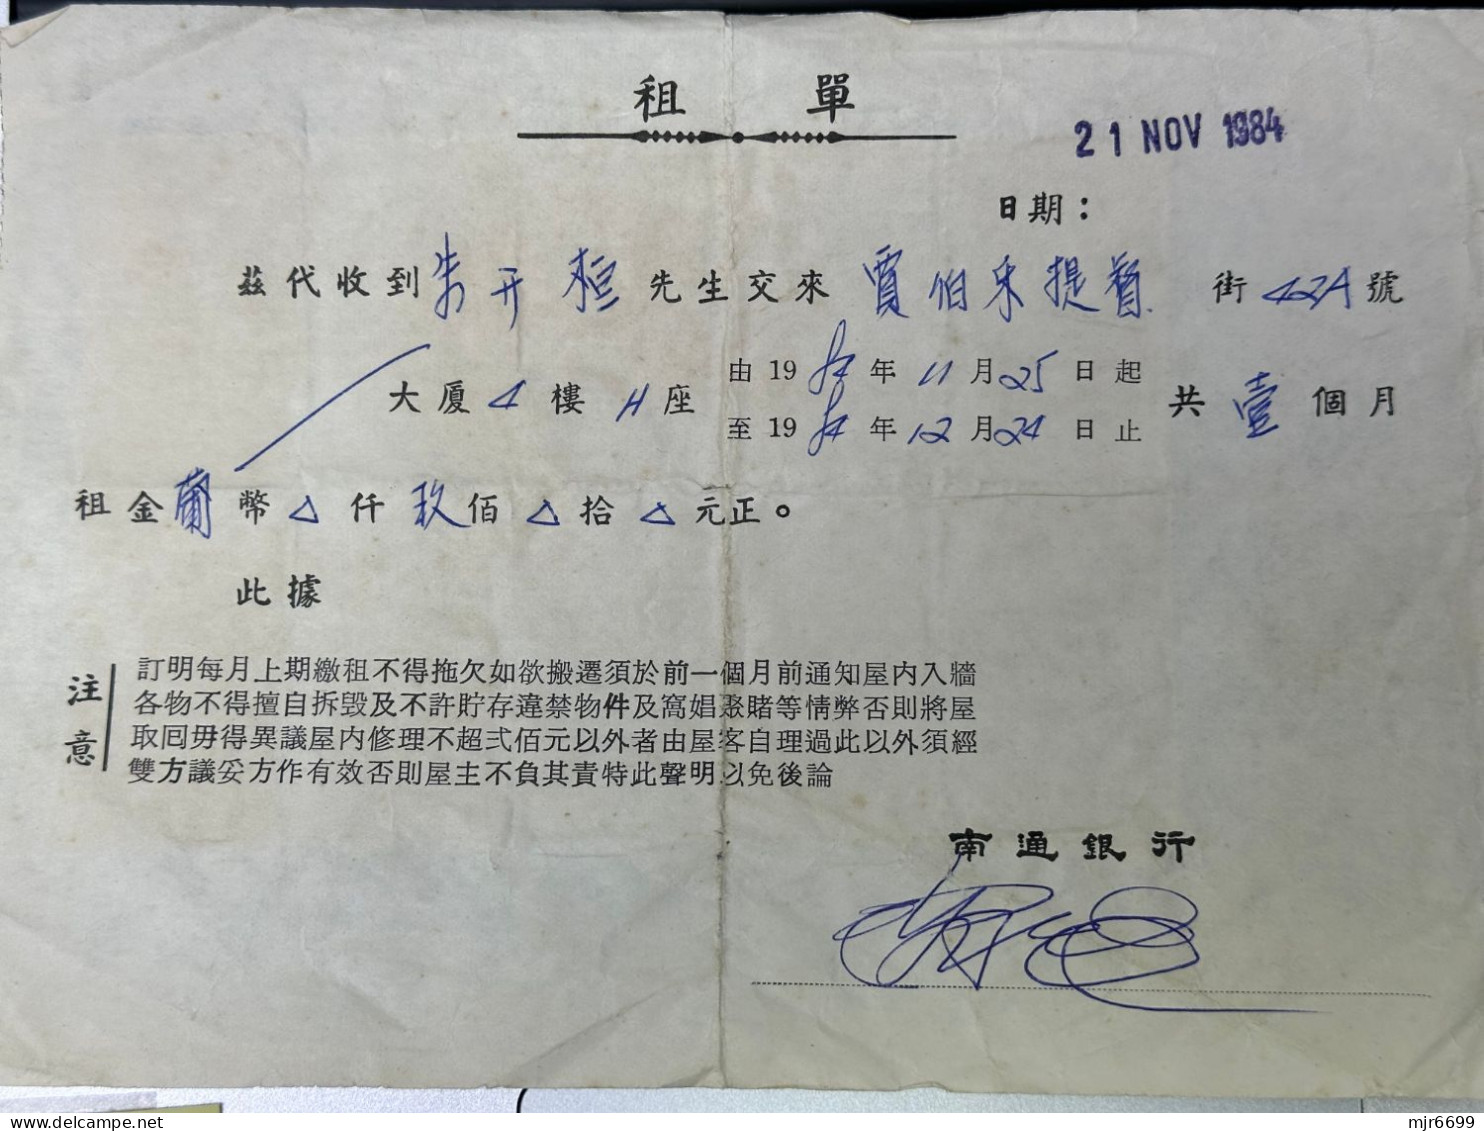 租單
21 NOV 1984
日期：
茲代收到朱开桓先生交來賈伯樂提督街42A號
大厦4樓H座 由1984年11月25日起 共壹個月
至1984年12月24日止
租金葡幣△仟玖佰△拾△元正。
此據
注意
訂明每月上期繳租不得拖欠如欲搬遷須於前一個月前通知屋內入牆
各物不得擅自拆毀及不許貯存違禁物件及窩娼聚賭等情弊否則將屋
取回毋得異議屋內修理不超弍佰元以外者由屋客自理過此以外須經
雙方議妥方作有效否則屋主不負其責特此聲明以免後論
南通銀行
delcampe.net
mjr6699